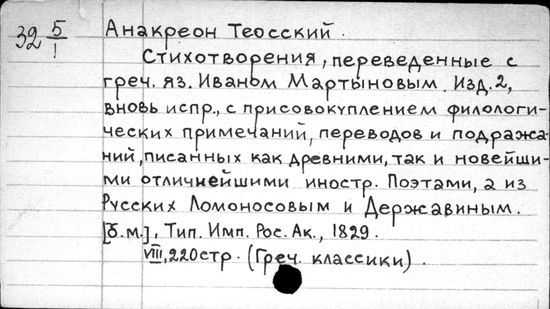 32 5/1
Анакреон Теосский.
Стихотворения, переведенные с
греч. яз. Иваном Мартыновым. Изд. 2,
вновь испр., с присовокуплением филологи-
ческих примечаний, переводов и подража-
ний, писанных как древними, так и новейши-
ми отличнейшими иностр. Поэтами, а из
Русских Ломоносовым и Державиным.
[б.м.], Тип. Имп. Рос. Ак., 1829.
VIII, 220 стр. (Греч. классики).